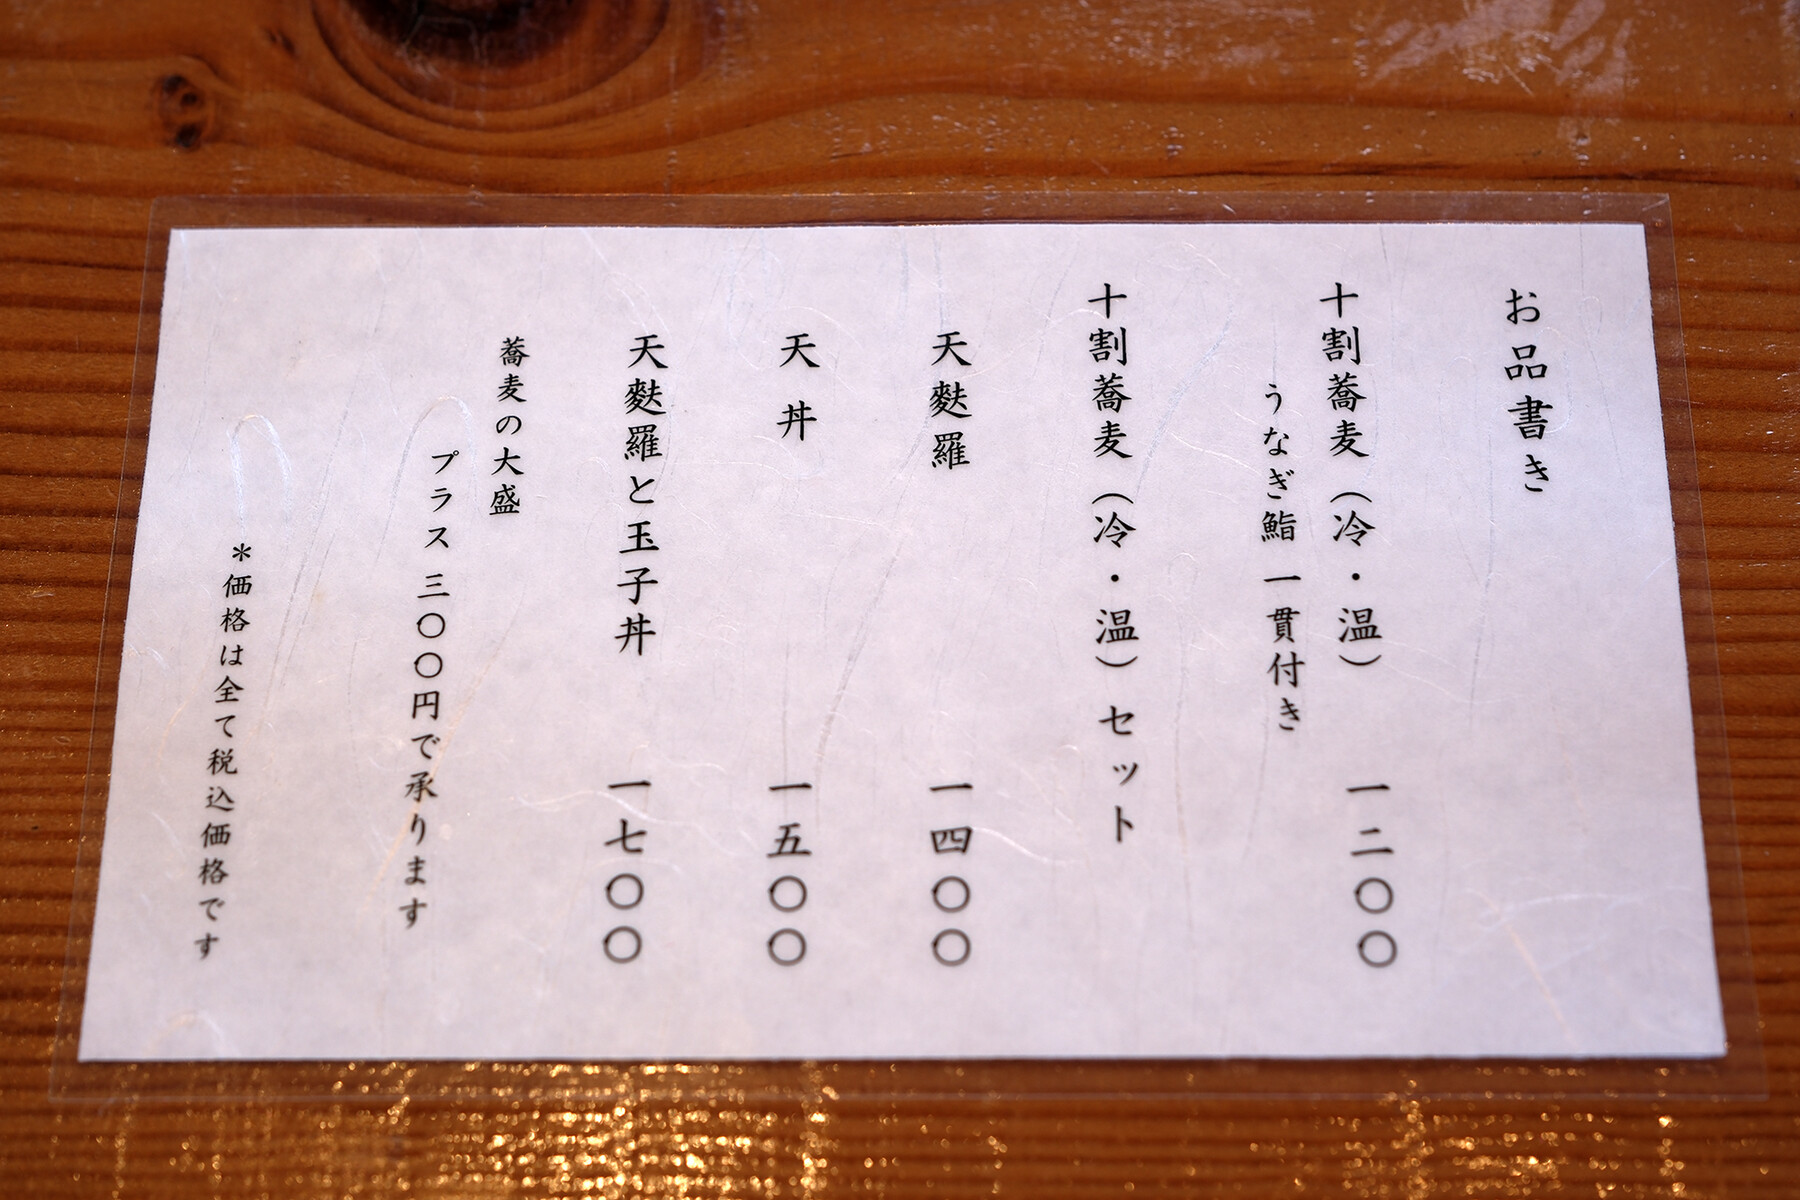 お品書き
十割蕎麦（冷・温） 一二〇〇
うなぎ鮨 一貫付き
十割蕎麦（冷・温）セット
天麩羅 一四〇〇
天丼 一五〇〇
天麩羅と玉子丼 一七〇〇
蕎麦の大盛
プラス 三〇〇円で承ります
＊価格は全て税込価格です